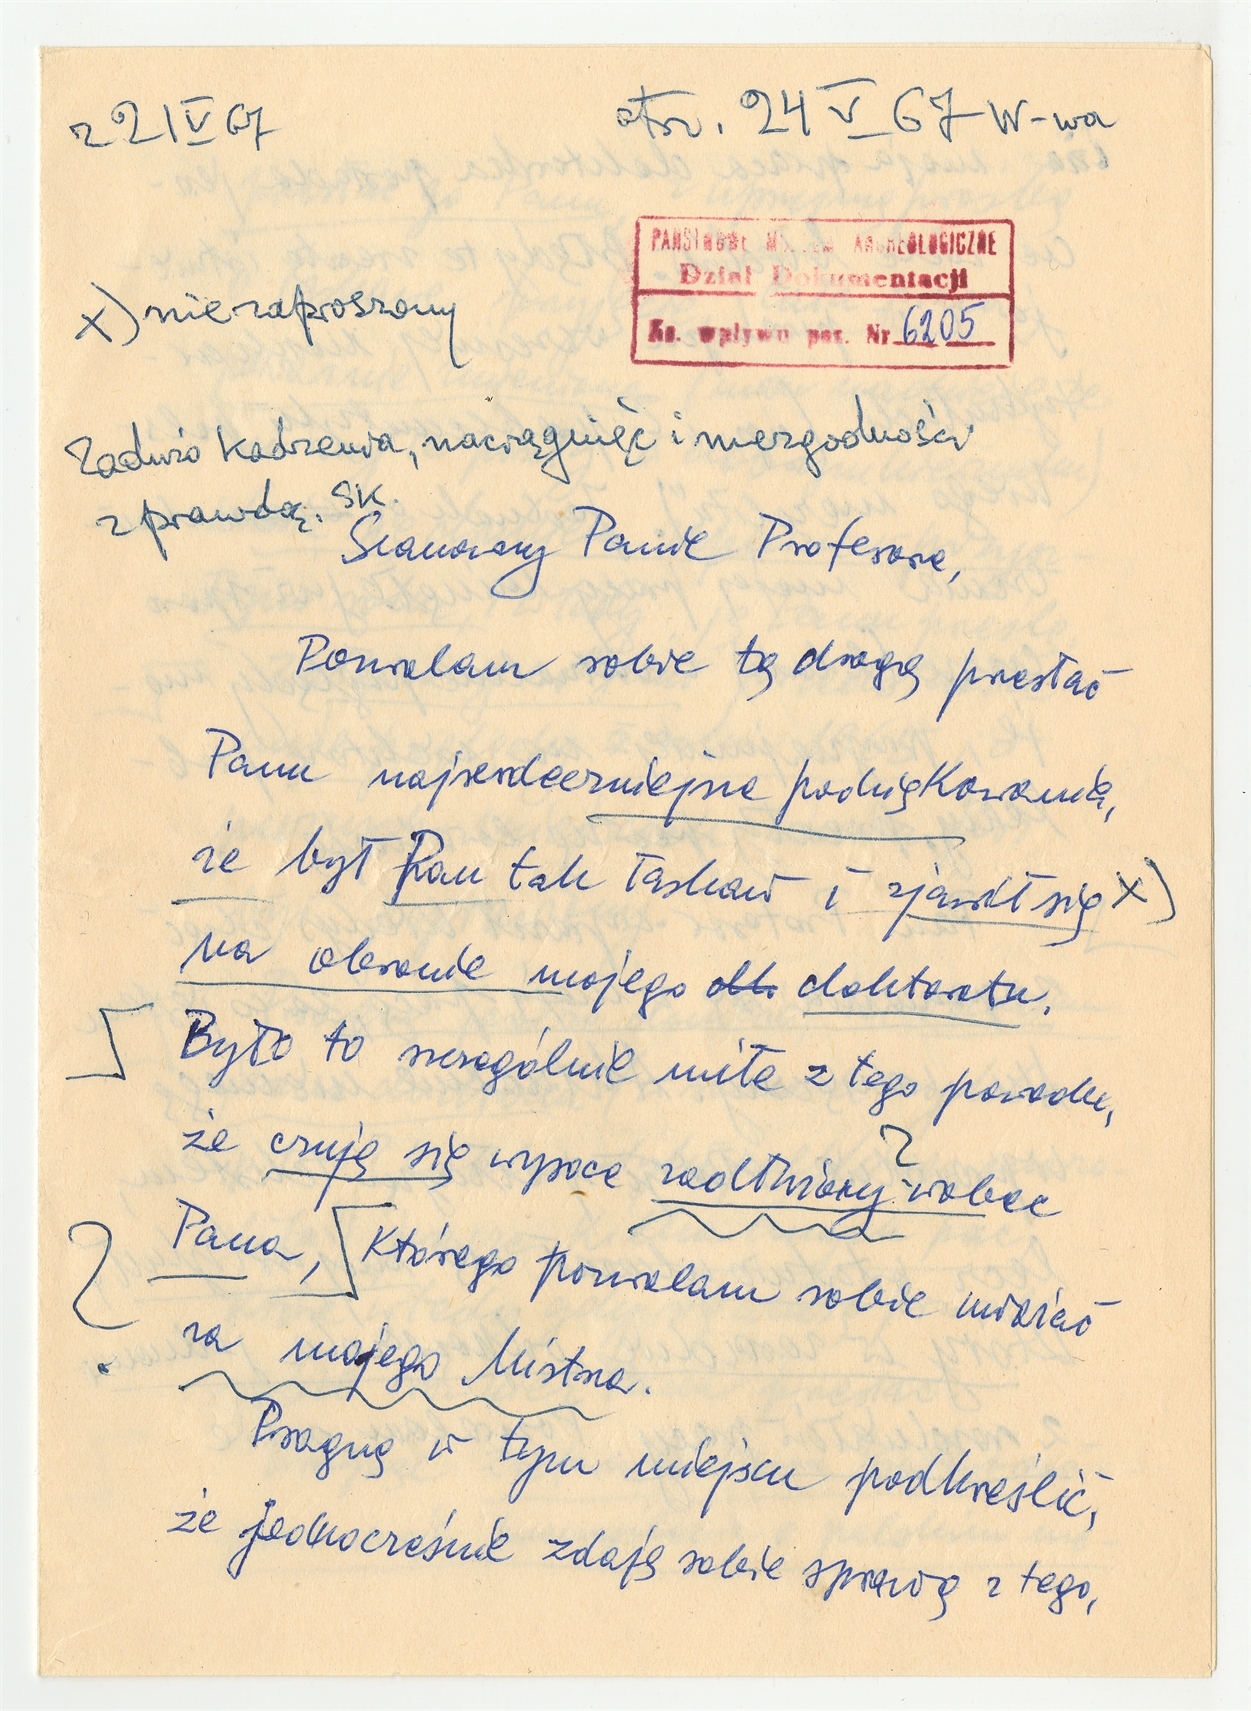 z 21 V 67
otrz. 24 V 67 W-wa
PAŃSTWOWE MUZEUM ARCHEOLOGICZNE
Dział Dokumentacji
Ks. wpływu poz. Nr 6205
x) niezaproszony
Zadużo kadzenia, naciągnięć i niezgodności
z prawdą. SK.
Szanowny Panie Profesorze,
Pozwalam sobie tą drogą przesłać
Panu najserdeczniejsze podziękowania,
że był Pan tak łaskaw i zjawił się x)
na obronie mojego dok. doktoratu.
Było to szczególnie miłe z tego powodu,
że czuję się wysoce zadłużony ? wobec
Pana, którego pozwalam sobie uważać
?
za mojego Mistrza.
Pragnę w tym miejscu podkreślić,
że jednocześnie zdaję sobie sprawę z tego,